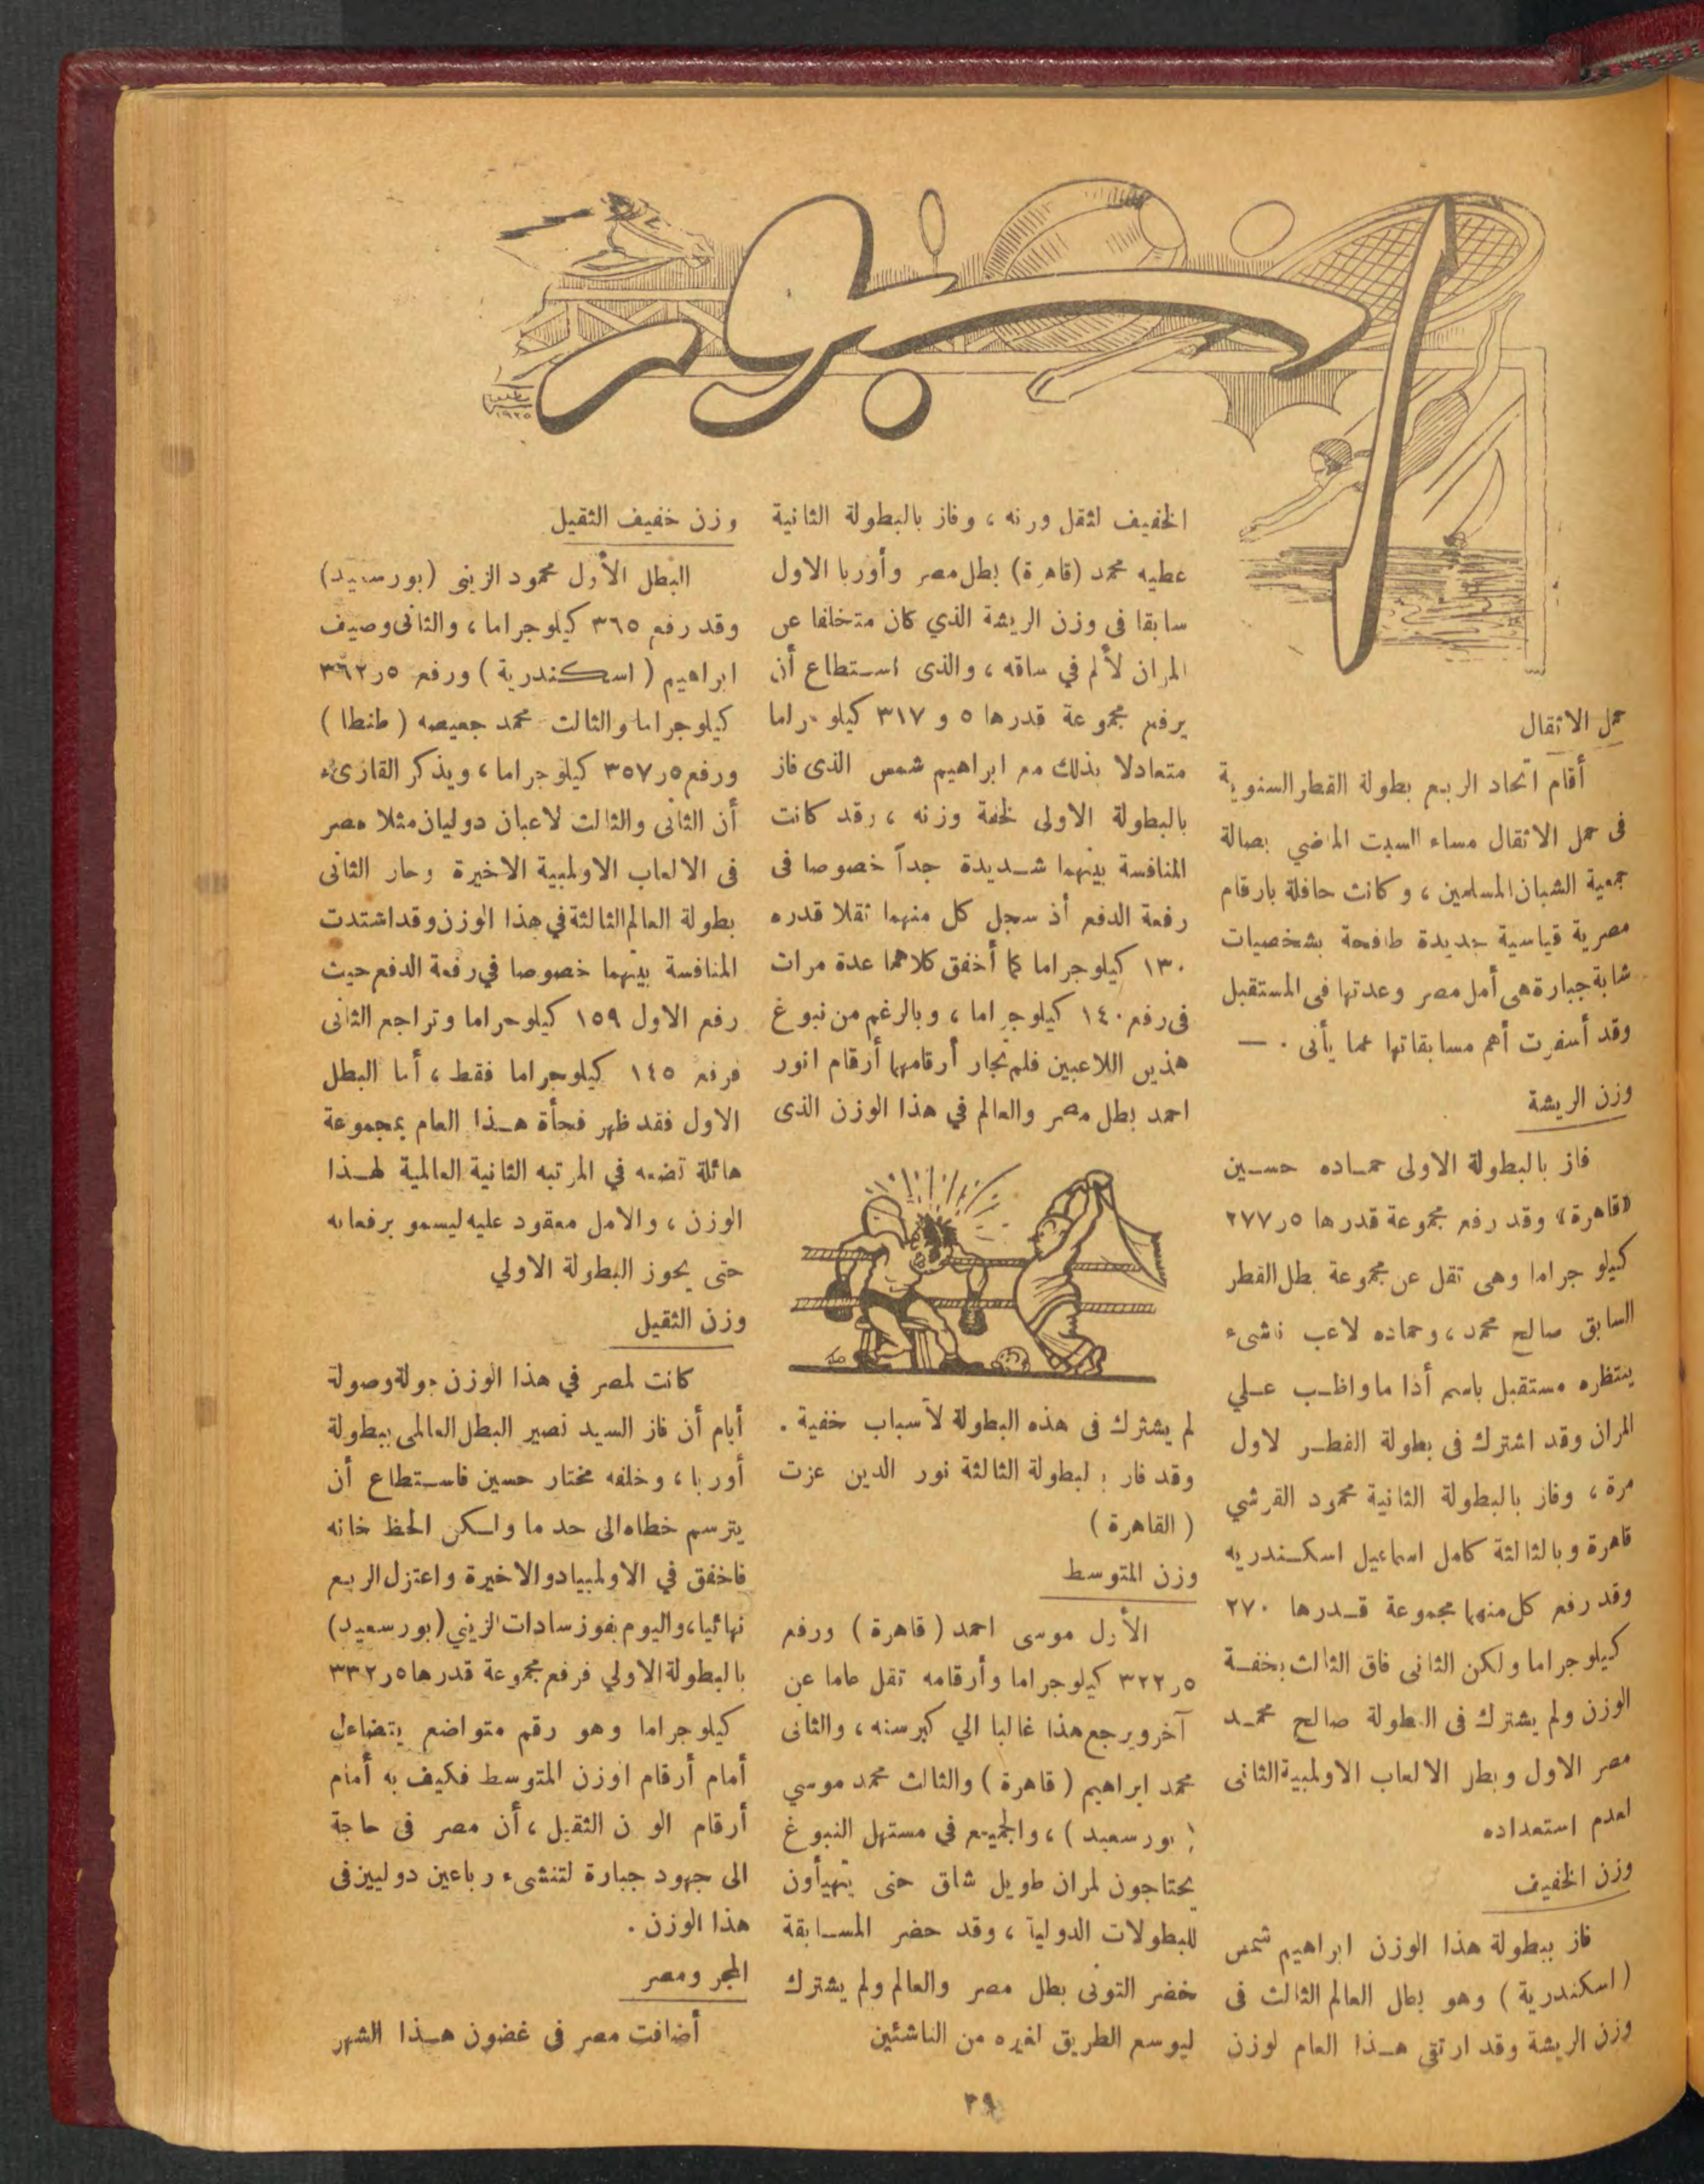 اسبور
١٩٣٥
حمل الاثقال
أقام اتحاد الربع بطولة القطر السنوية
فى حمل الاثقال مساء السبت الماضي بصالة
جمعية الشبان المسلمين ، وكانت حافلة بارقام
مصرية قياسية جديدة طافحة بشخصيات
شابة جبارة هى أمل مصر وعدتها فى المستقبل
وقد أسفرت أهم مسابقاتها عما يأتى . —
وزن الريشة
فاز بالبطولة الاولى حماده حسين
«قاهرة» وقد رفع مجموعة قدرها ٥ر٢٧٧
كيلو جراما وهى تقل عن مجموعة بطل القطر
السابق صالح محمد ، وحماده لاعب ناشىء
ينتظره مستقبل باسم أذا ما واظب علي
المران وقد اشترك فى بطولة القطر لاول
مرة ، وفاز بالبطولة الثانية محمود القرشي
قاهرة وبالثالثة كامل اسماعيل اسكندريه
وقد رفع كل منهما مجموعة قدرها ٢٧٠
كيلو جراما ولكن الثانى فاق الثالث بخفة
الوزن ولم يشترك فى البطولة صالح محمد
مصر الاول وبطل الالعاب الاولمبية الثانى
لعدم استعداده
وزن الخفيف
فاز ببطولة هذا الوزن ابراهيم شمس
( اسكندرية ) وهو بطل العالم الثالث فى
وزن الريشة وقد ارتقى هذا العام لوزن
الخفيف لثقل ورنه ، وفاز بالبطولة الثانية
عطيه محمد (قاهرة) بطل مصر وأوربا الاول
سابقا فى وزن الريشة الذي كان متخلفا عن
المران لألم في ساقه ، والذى استطاع أن
يرفع مجموعة قدرها ٥ و ٣١٧ كيلو جراما
متعادلا بذلك مع ابراهيم شمس الذى فاز
بالبطولة الاولى لخفة وزنه ، وقد كانت
المنافسة بينهما شديدة جداً خصوصا فى
رفعة الدفع أذ سجل كل منهما ثقلا قدره
١٣٠ كيلو جراما كما أخفق كلاهما عدة مرات
فى رفع ١٤٠ كيلو جراما ، وبالرغم من نبوغ
هذين اللاعبين فلم تجار أرقامهما أرقام انور
احمد بطل مصر والعالم في هذا الوزن الذى
لم يشترك فى هذه البطولة لأسباب خفية .
وقد فار بالبطولة الثالثة نور الدين عزت
( القاهرة )
وزن المتوسط
الأول موسى احمد ( قاهرة ) ورفع
٥ر٣٢٢ كيلو جراما وأرقامه تقل عاما عن
آخر ويرجع هذا غالبا الي كبر سنه ، والثانى
محمد ابراهيم ( قاهرة ) والثالث محمد موسي
( بورسعيد ) ، والجميع في مستهل النبوغ
يحتاجون لمران طويل شاق حتى يتهيأون
للبطولات الدولية ، وقد حضر المسابقة
خضر التونى بطل مصر والعالم ولم يشترك
ليوسع الطريق لغيره من الناشئين
وزن خفيف الثقيل
البطل الأول محمود الزينى (بورسعيد)
وقد رفع ٣٦٥ كيلو جراما ، والثانى وصيف
ابراهيم ( اسكندرية ) ورفع ٥ر٣٦٢
كيلو جراما والثالث محمد جعيصه ( طنطا )
ورفع ٥ر٣٥٧ كيلو جراما ، ويذكر القارىء
أن الثانى والثالث لاعبان دوليان مثلا مصر
فى الالعاب الاولمبية الاخيرة وحار الثانى
بطولة العالم الثالثة في هذا الوزن وقد اشتدت
المنافسة بينهما خصوصا في رفعة الدفع حيث
رفع الاول ١٥٩ كيلو جراما وتراجع الثانى
فرفع ١٤٥ كيلو جراما فقط ، أما البطل
الاول فقد ظهر فجأة هذا العام بمجموعة
هائلة تضعه في المرتبه الثانية العالمية لهذا
الوزن ، والامل معقود عليه ليسمو برفعاته
حتى يحوز البطولة الاولي
وزن الثقيل
كانت لمصر في هذا الوزن جولة وصولة
أيام أن فاز السيد نصير البطل العالمى ببطولة
أوربا ، وخلفه مختار حسين فاستطاع أن
يترسم خطاه الى حد ما ولكن الحظ خانه
فاخفق في الاولمبياد والاخيرة واعتزل الربع
نهائيا ، واليوم يفوز سادات الزيني (بورسعيد)
بالبطولة الاولي فرفع مجموعة قدرها ٥ر٣٣٢
كيلو جراما وهو رقم متواضع يتضاءل
أمام أرقام اوزن المتوسط فكيف به أمام
أرقام الو ن الثقيل ، أن مصر فى حاجة
الى جهود جبارة لتنشىء رباعين دوليين فى
هذا الوزن .
المجر ومصر
أضافت مصر فى غضون هذا الشهر
٣٩